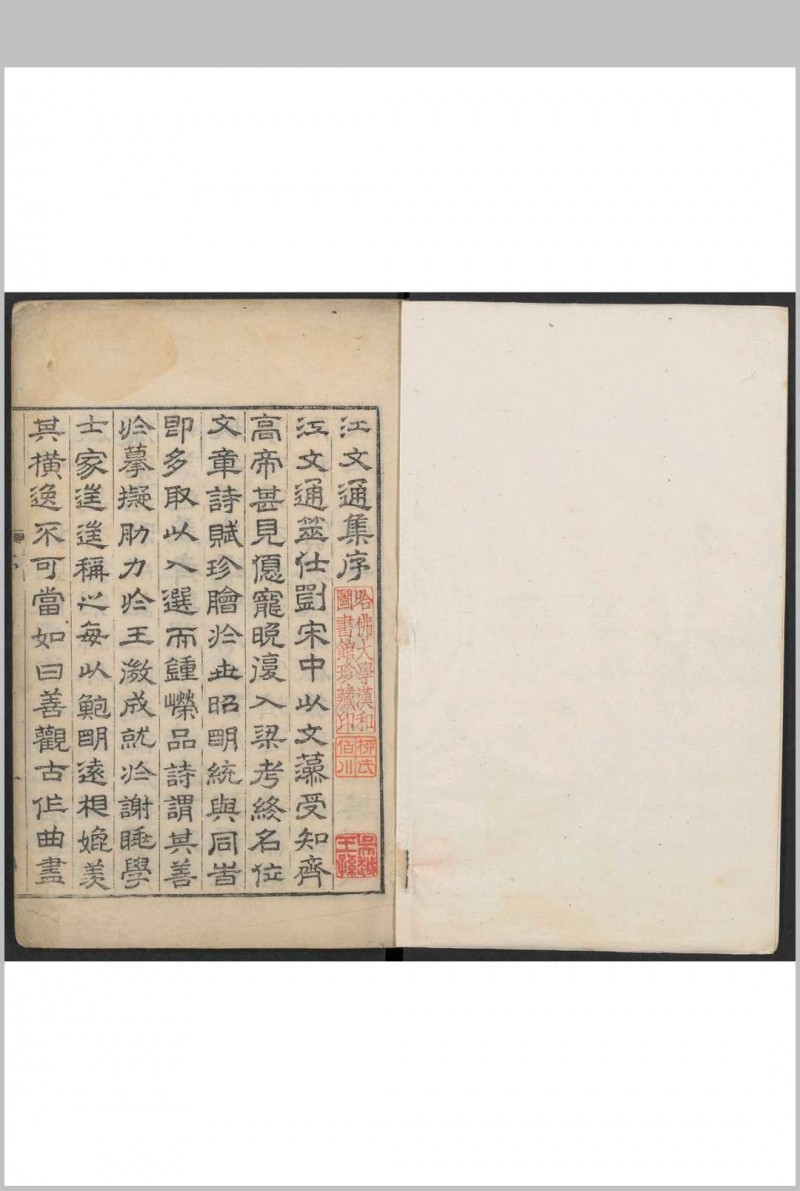 江文通集序
江文通筮仕劉宋中以文藻受知齊
高帝甚見優寵晚復入梁考終名位
文章詩賦珍膾於世昭明統與同旹
即多取以入選而鍾嶸品詩謂其善
於摹擬助力於王微成就於謝朓學
士家往往稱之每以鮑明遠相媲羨
其橫逸不可當如曰善觀古作曲盡
哈佛大學漢和
圖書館珍藏印
柳氏
伯川
吳越
王孫